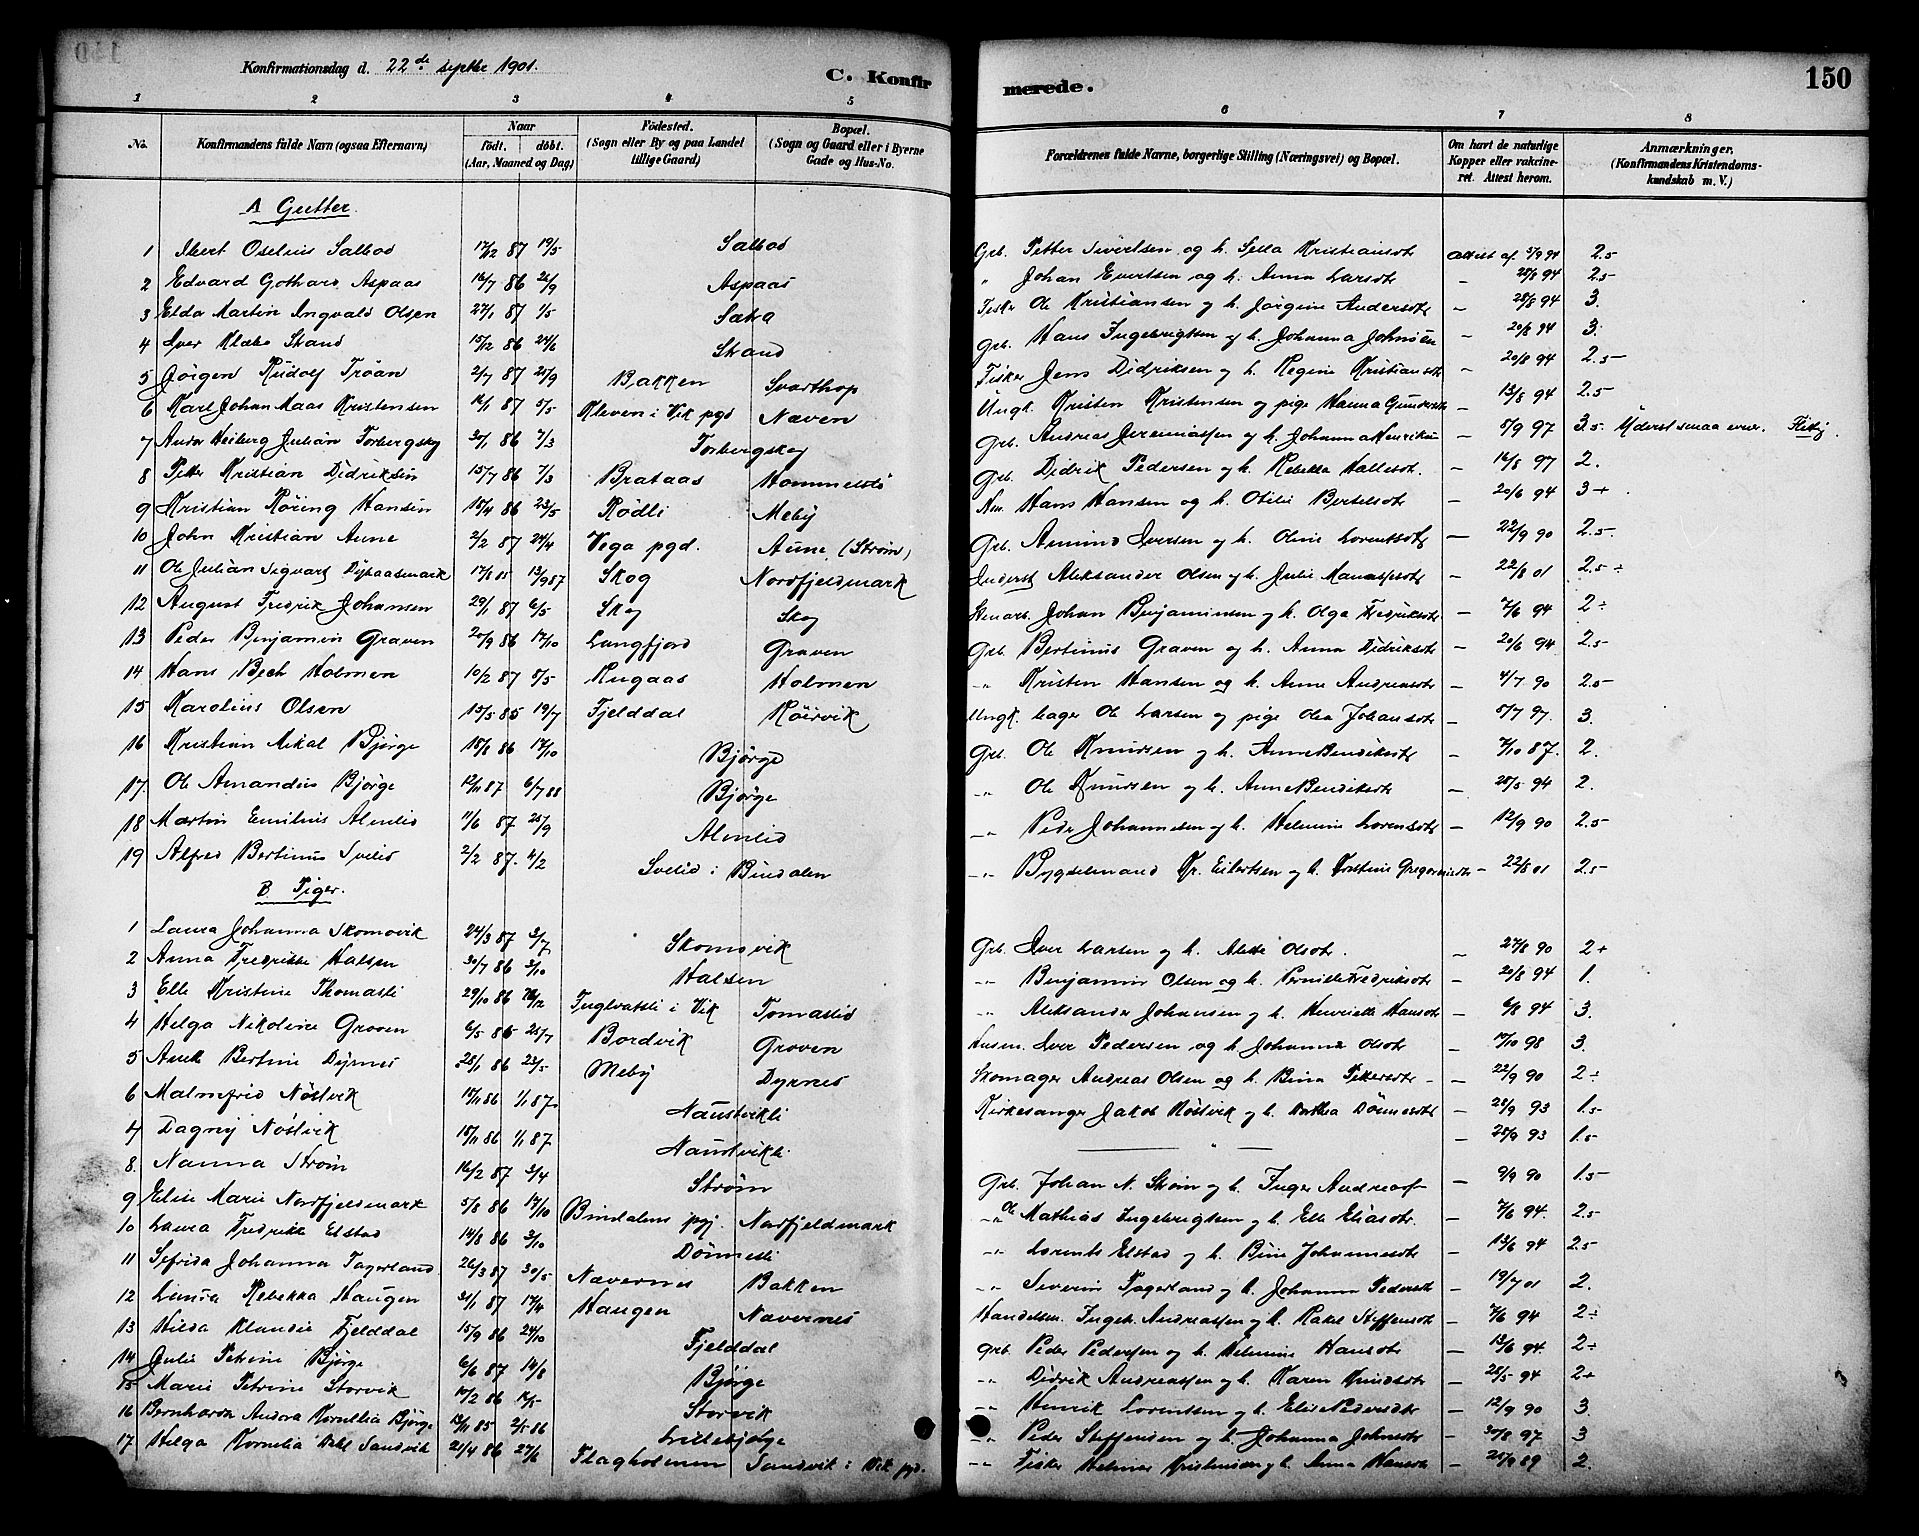 Konfirmationsdag d. 22de septbr 1901.
C. Konfirmerede.
150
1 2 3 4 5 6 7 8
No. Konfirmandens fulde Navn (ogsaa Efternavn) Naar født. døbt. (Aar, Maaned og Dag) Fødested. (Sogn eller By og paa Landet tillige Gaard) Bopæl. (Sogn og Gaard eller i Byerne Gade og Hus-No. Forældrenes fulde Navne, borgerlige Stilling (Næringsvei) og Bopæl. Om havt de naturlige Kopper eller vakcineret. Attest herom. Anmærkninger. (Konfirmandens Kristendomskundskab m. V.)
A Gutter.
1 Oselius Salbod 17/2 87 19/5 Salbod Grb. Petter Sivertsen og h. Kristiansdt attest af 5/9 91 2.5
2 Edvard Gothard Aspaas 16/7 86 26/9 Aspaas " Johan Evertsen og h. Anna Larsdt – 28/8 94 2.5
3 Martin Ingvald Olsen 27/1 87 1/5 Fisker Ole Kristiansen og h. Jørgine Andersdt – 28/8 94 3.
4 Iver Klæbo Strand 15/12 86 24/6 Strand Grb. Hans Ingebrigtsen og h. Johanna Johnsen 20/8 94 3.
5 Jørgen Rudolf Trøan 2/7 87 21/9 Bakken Svarthop Fisker Jens Didriksen og h. Regine Kristiansdt – 20/8 94 2.5
6 Karl Johan Maas Kristensen 16/1 87 5/5 Kleven i Vik pgd Næven Ungk. Kristen Kristensen og pige Hanna Gundersdt – 13/8 94 2.5
7 Heiberg Julian Torbergskog 30/1 86 7/3 Torbergskog Grb. Andreas Jeremiassen og h. Johanna – 5/9 97 3.5 Yderst smaa evner. Flittig.
8 Petter Kristian Didriksen 15/7 86 7/3 Brataas Grb. Didrik Pedersen og h. Rebekka – 16/8 97 2.
9 Kristian Røring Hansen 15/4 86 23/5 Rødli Meby Hans Hansen og h. Otilie Bertelsdt – 20/6 94 3+
10 John Kristian Aune 2/2 87 24/4 Vega pgd. Aune (Strøm) Grb. Amund Iversen og h. Oline Lorentsdt – 22/9 90 2.5
11 Ole Julian Sigvart 17/8 85 13/9 87 Skog Nordfjeldmark Inderst Aleksander Olsen og h. Julie Manassesdt – 22/8 01 2.5 ÷
12 August Fredrik Johansen 29/1 87 6/5 Skog Skog Johan Benjaminsen og h. Olga Fredriksdt – 7/6 94 2 ÷
13 Peder Benjamin Graven 20/9 86 17/10 Langfjord Graven Grb. Bertinus Graven og h. Anna Didriksdt – 20/6 94 2.5
14 Hans Bech Holmen 10/2 87 8/5 Rugaas Holmen " Kristen Hansen og h. Anne Andreasdt – 4/7 90 2.5
15 Karolius Olsen 15/5 85 19/7 Fjelddal Røirvik Ungk. Ole Larsen og pige Olea Johansdt – 5/7 97. 3.
16 Kristian Mikal Bjørge 18/8 86 17/10 Bjørge Grb. Ole Knudsen og h. Anne Bendiksdt – 7/10 87. 2.
17. Ole Amandus Bjørge 12/11 87 6/7 88 Bjørge " Ole Knudsen og h. Anne Bendiksdt – 28/5 94 2.
18 Martin Emilius Almlid 11/6 87 25/9 Almlid " Peder Johannesen og h. Helmine Lorensdt – 12/9 90 2.5
19 Alfred Bertinus Svelid 2/2 87. 4/2 Svelid i Bindalen " Bygselmand Kr. Eilertsen og h. Kirstine – 22/8 01 2.5
B. Piger.
1 Laura Johanna Skomovik 24/3 87 3/7 Skomsvik Grb. Iver Larsen og h. Olsdt. – 27/8 90 2+
2 Anna Fredrikke Halsen 30/7 86 3/10 Halsen " Benjamin Olsen og h. Pernille Fredriksdt – 20/8 94 1.
3 Elle Kristine Thomasli 29/10 86 26/12 i Vik Tomaslid " Aleksander Johansen og h. Henriette Hansdt – 6/8 94 3.
4 Helga Nikoline Groven 6/5 86 25/7 Bordvik Groven Husm. Iver Pedersen og h. Johanne Olsdt – 17/10 98 3.
5 Bertine Dyrnes 28/1 86 23/5 Meby Dyrnes Skomager Andreas Olsen og h. Bina Pettersdt – 22/9 90 2 ÷
6 Malmfrid Nøstvik 15/11 86 1/1 87. Naustvikli Kirkesanger Jakob Nøstvik og h. Dorthea Dønnesdt – 28/9 93 1.5
7 Dagny Nøstvik 15/11 86 1/1 87 Naustvikli – " – – 28/9 93 1.5
8. Nanna Strøm 16/2 87 3/4 Strøm Grb. Johan N. Strøm og h. Inger 9/9 90 1.5
9 Elise Marie Nordfjeldmark 5/8 86 17/10 Bindalens pgj. Nordfjeldmark " Mathias Ingebrigtsen og h. Elle Eliasdt. – 7/6 94. 2.5
10 Laura Fredrikke Elstad 14/8 86 3/10 Dønnesli " Lorents Elstad og h. Bine Johannesdt – 13/6 94 2.5
11 Sefrida Johanna Fagerland 26/3 87 30/5 Nævernes Bakken " Severin Fagerland og h. Johanna Pedersdt – 19/7 01 2.
12 Rebekka Haugen 31/1 87 17/4 Haugen Nævernes Handelsm. Ingeb. Andreassen og h. Rakel Steffensdt – 7/6 94 2 ÷
13 Hilda Klaudie Fjelddal 15/9 86 24/10 Fjelddal Grb Peder Pedersen og h. Helmine Hansdt – 13/6 94. 2 ÷
14 Julie Petrine Bjørge 6/6 87 14/8 Bjørge " Didrik Andreassen og h. Karen Knudsdt – 28/5 94 2+
15 Marie Petrine Storvik 17/2 86 14/5 Storvik " Henrik Lorentsen og h. Elise Pedersdt – 12/9 90 3.
16 Bernharda Andora Kornellia Bjørge 13/11 85 2/5 86 Lillebjørge " Peder Steffensen og h. Johanna Johnsdt – 30/8 97 3
17 Helga Kornelia Dahl Sandvik 21/4 86 27/6 Flagholmen Sandvik i Vik pgd. " Fisker Helmer Kristensen og h. Anna Hansdt – 28/9 89 2.